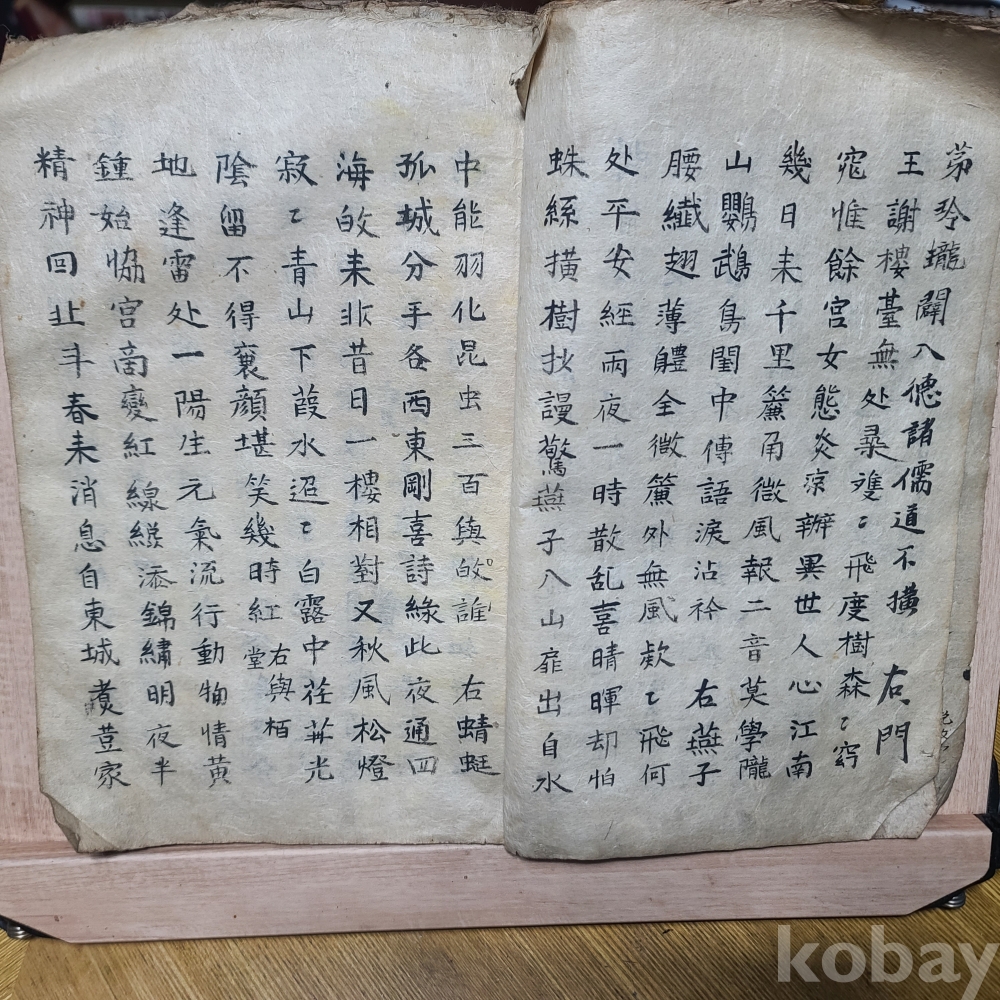 苐玲瓏闢八德諸儒道不㩴 右門
王謝樓臺無处㝷䨇〻飛度樹森〻窈
窕惟餘宮女態炎凉辦異世人心江南
幾日未千里簾甬微風報二音莫學隴
山鸚鵡鳥閨中傳語淚沾衿 右燕子
腰纖翅薄軆全微簾外無風欵〻飛何
处平安經雨夜一時散乱喜晴暉却怕
蛛絲撗樹抄謾驚燕子八山扉出自水
中能羽化昆虫三百與㰸誰 右蜻蜓
孤城分手各西東剛喜詩緣此夜通四
海㰸耒非昔日一樓相對又秋風松燈
寂〻青山下葭水迢〻白露中荏苒光
陰留不得衰顔堪笑幾時紅 右與栢堂
地逢雷处一陽生元氣流行動物情黄
鍾始恊宮啇變紅線纔添錦繡明夜半
精神回止斗春耒消息自東城煑荳家
kobay